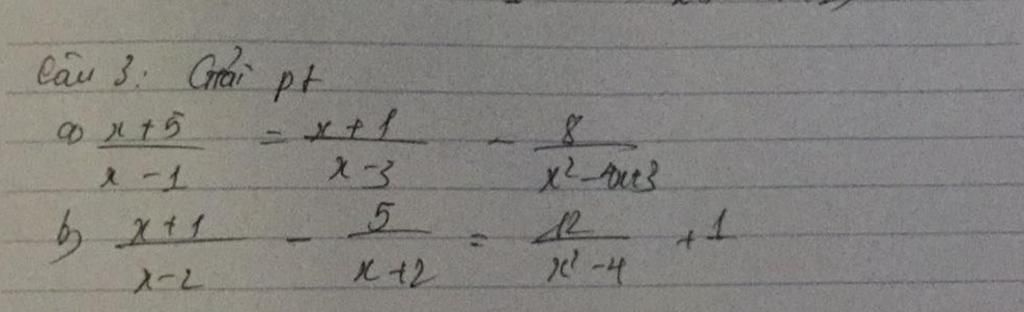 Câu 3: Giải pt
a) \frac{x+5}{x-1} = \frac{x+1}{x-3} - \frac{8}{x^2-4x+3}
b) \frac{x+1}{x-2} - \frac{5}{x+2} = \frac{12}{x^2-4} + 1